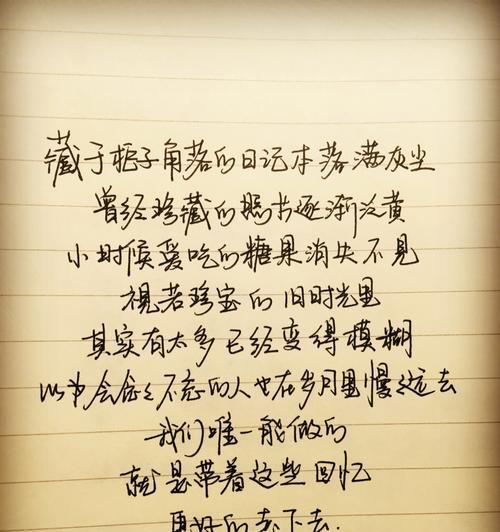 藏于柜子角落的日记本落满灰尘
曾经珍藏的照片逐渐泛黄
小时候爱吃的糖果消失不见
视若珍宝的旧时光里
其实有太多已经变得模糊
以为会念念不忘的人也在岁月里慢慢远去
我们唯一能做的
就是带着这些回忆
更好的走下去.